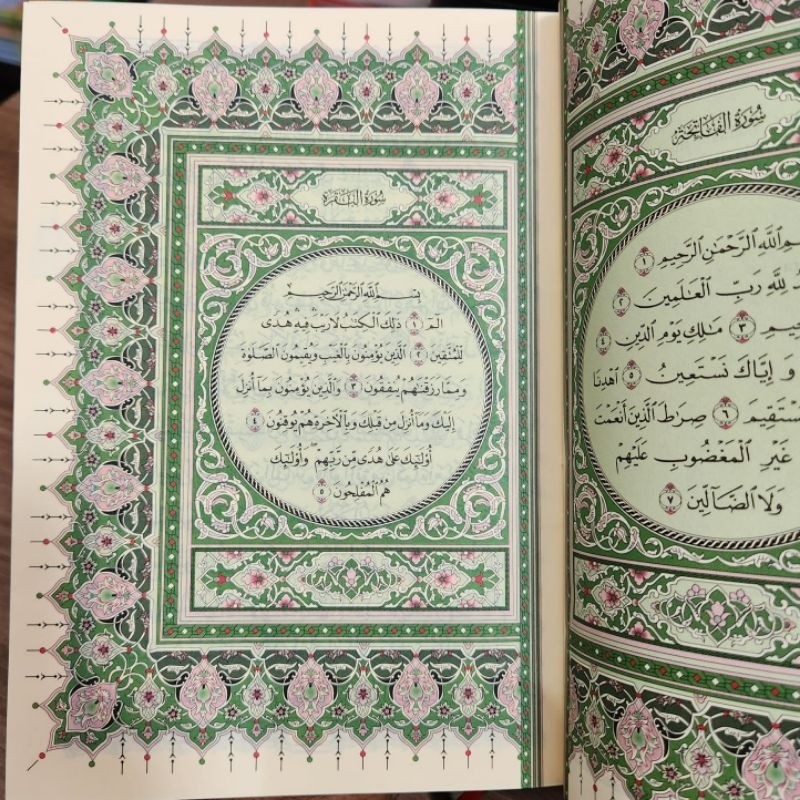 سُورَةُ الفَاتِحَةِ
ٱللَّهِ ٱلرَّحْمَٰنِ ٱلرَّحِيمِ ١
لِلَّهِ رَبِّ ٱلْعَٰلَمِينَ ٢
٣ مَٰلِكِ يَوْمِ ٱلدِّينِ ٤
وَإِيَّاكَ نَسْتَعِينُ ٥ ٱهْدِنَا
٦ صِرَٰطَ ٱلَّذِينَ أَنْعَمْتَ
غَيْرِ ٱلْمَغْضُوبِ عَلَيْهِمْ
وَلَا ٱلضَّآلِّينَ ٧
سُورَةُ البَقَرَةِ
بِسْمِ ٱللَّهِ ٱلرَّحْمَٰنِ ٱلرَّحِيمِ
الٓمٓ ١ ذَٰلِكَ ٱلْكِتَٰبُ لَا رَيْبَ ۛ فِيهِ ۛ هُدًى
لِّلْمُتَّقِينَ ٢ ٱلَّذِينَ يُؤْمِنُونَ بِٱلْغَيْبِ وَيُقِيمُونَ ٱلصَّلَوٰةَ
وَمِمَّا رَزَقْنَٰهُمْ يُنفِقُونَ ٣ وَٱلَّذِينَ يُؤْمِنُونَ بِمَآ أُنزِلَ
إِلَيْكَ وَمَآ أُنزِلَ مِن قَبْلِكَ وَبِٱلْأٓخِرَةِ هُمْ يُوقِنُونَ ٤
أُو۟لَٰٓئِكَ عَلَىٰ هُدًى مِّن رَّبِّهِمْ ۖ وَأُو۟لَٰٓئِكَ
هُمُ ٱلْمُفْلِحُونَ ٥